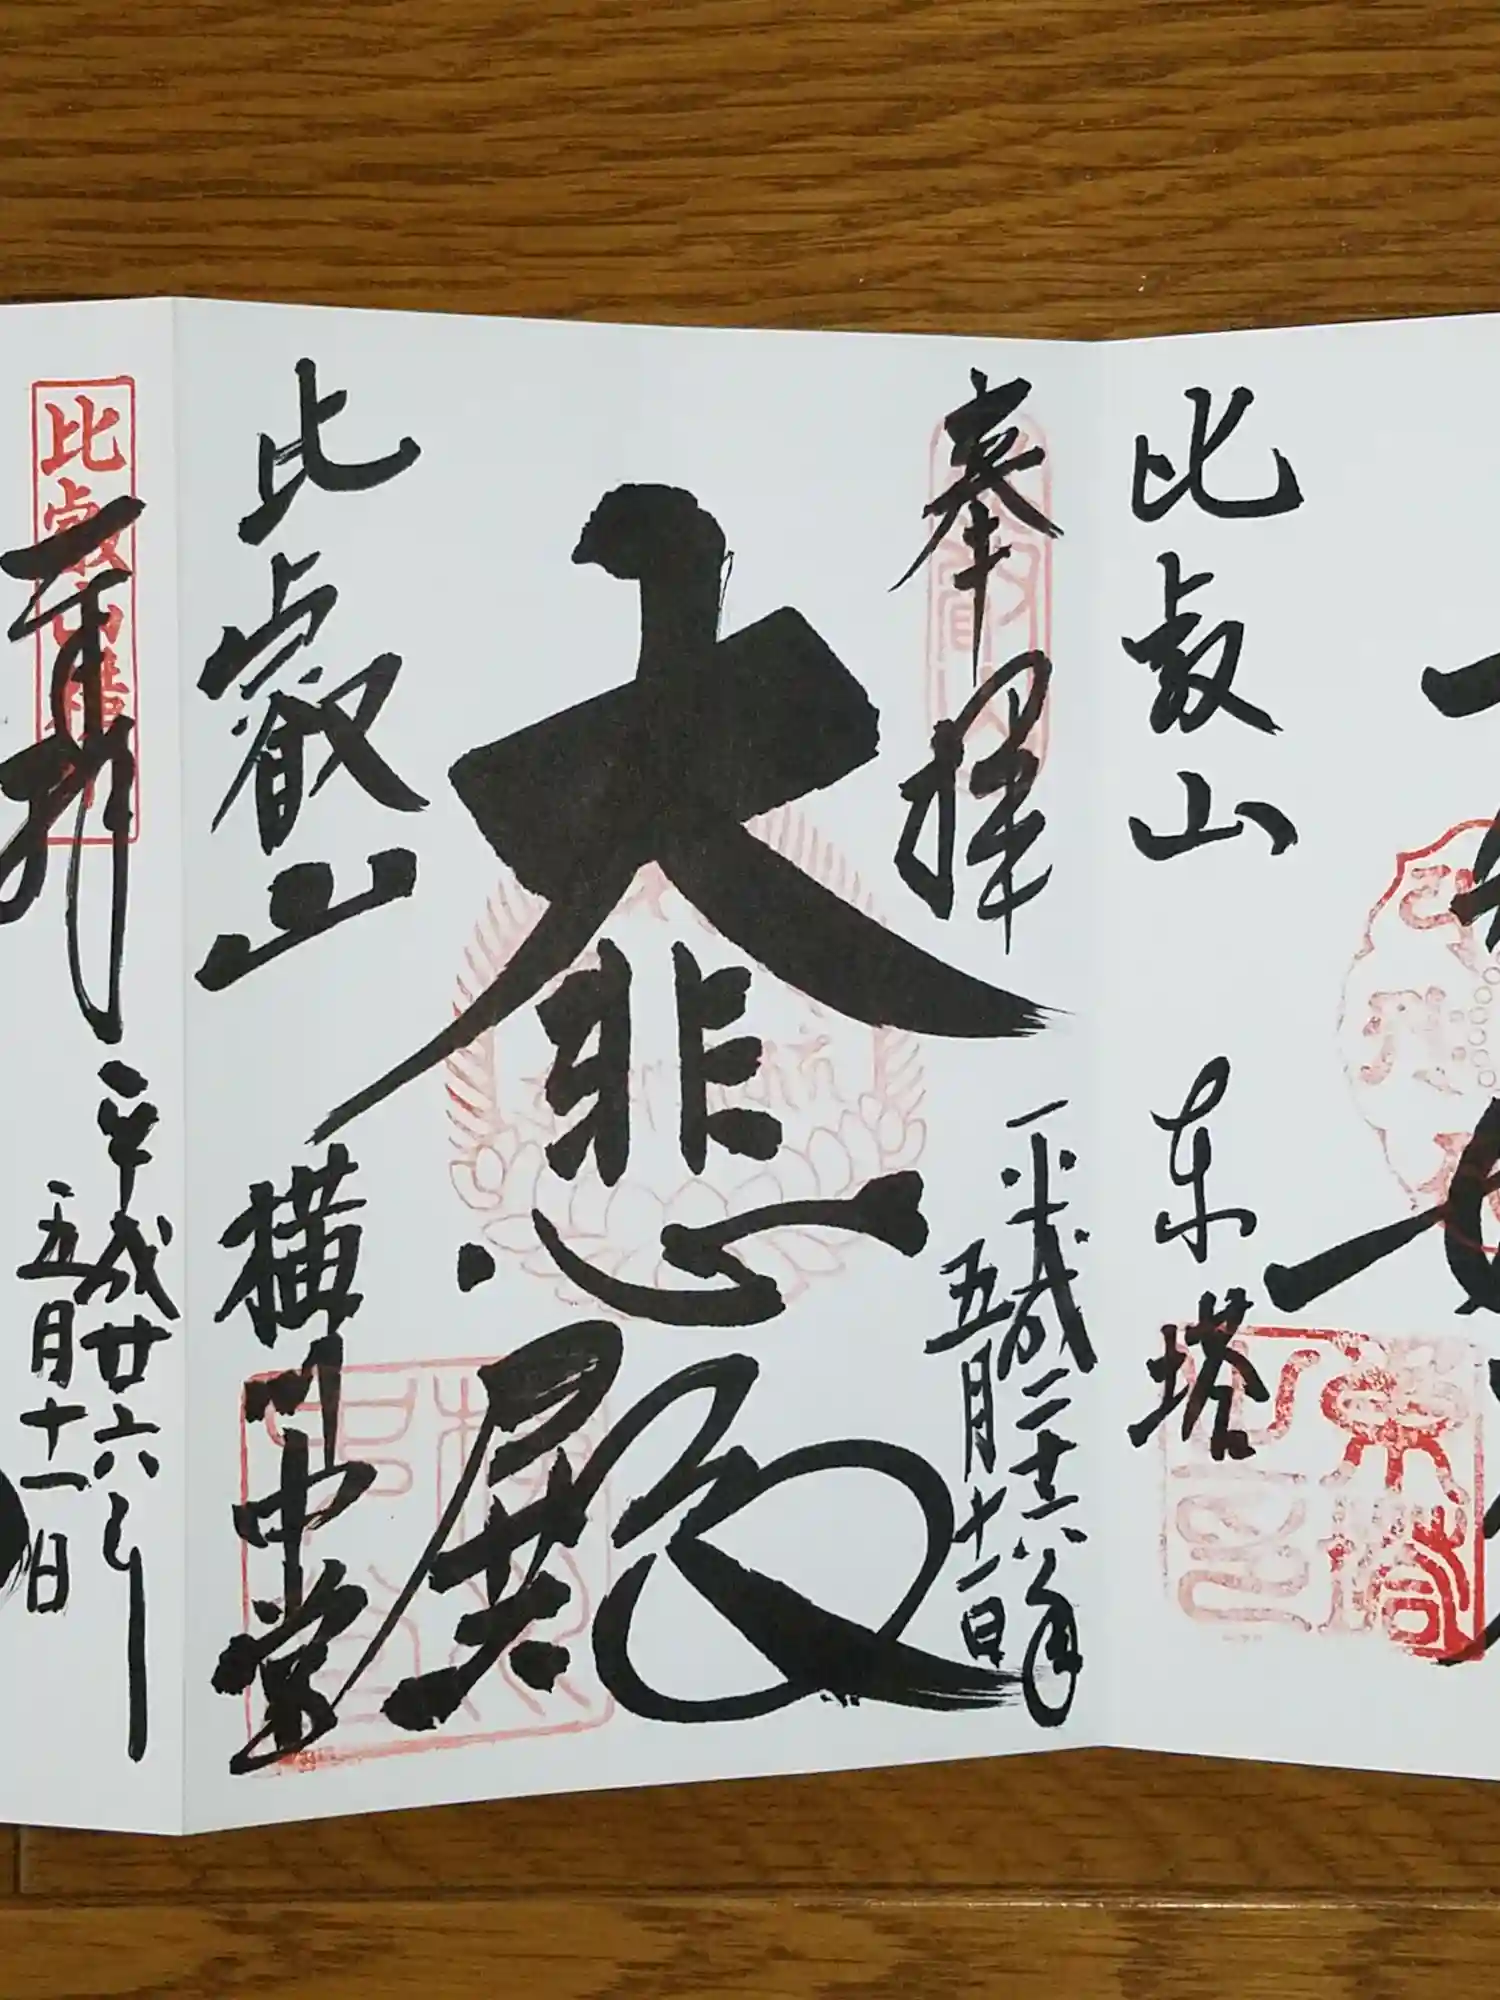 比叡山
東塔
奉拝
平成二十六年
五月十一日
大悲殿
比叡山
横川中堂
比叡山横川
奉拝
平成廿六年
五月十一日